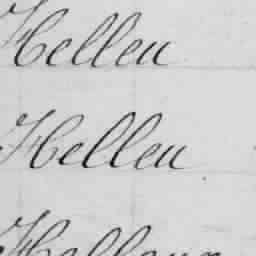 Hellen
Hellen